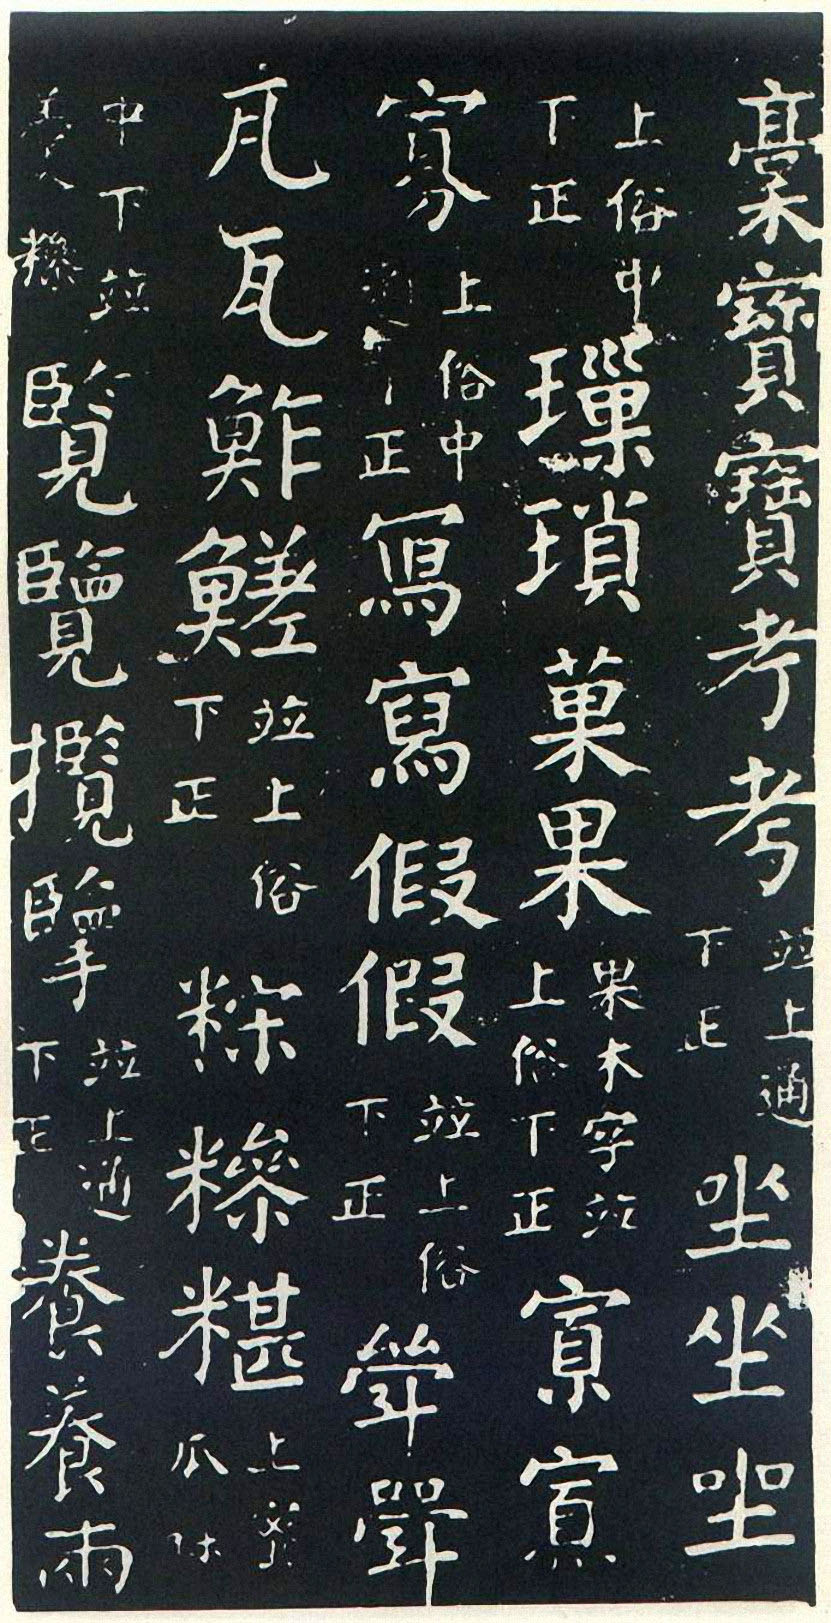 稾寳寶考考並上通下正坐坐坐
上俗中下正璅瑣菓果果木字並上俗下正寡寡
寡上俗中通下正冩寫假假並上俗下正斝斝
瓦瓦鮓鮺並上俗下正粽糝糂上瓜
中下並羹糝覽覽攬擥並上通下正養養兩